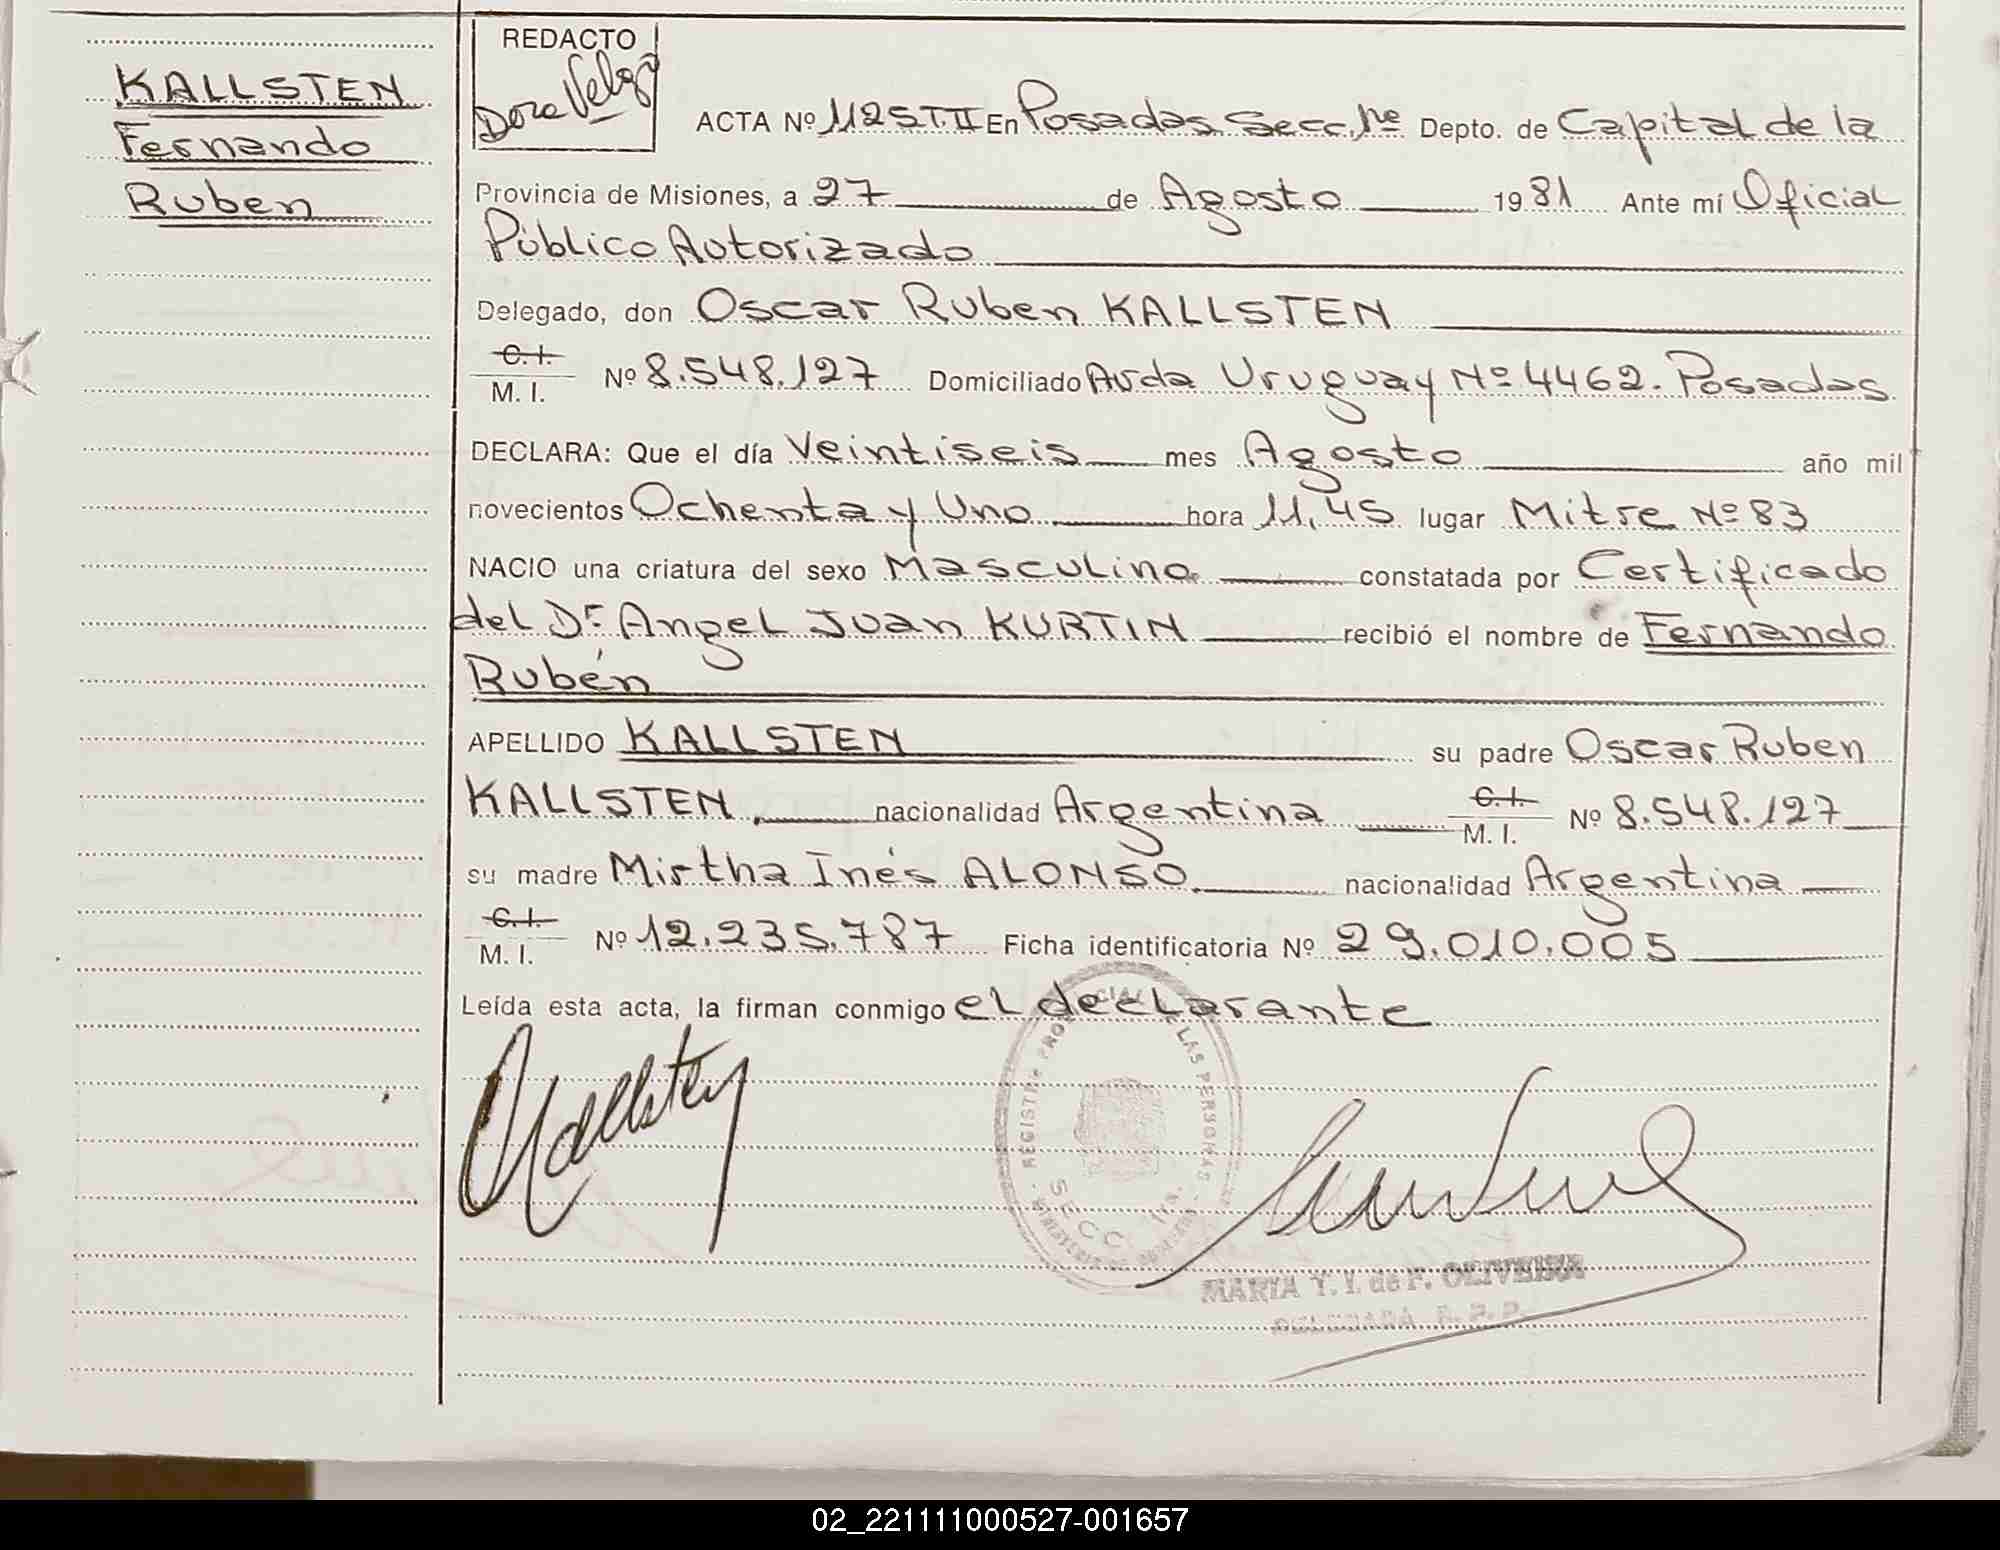 KALLSTEN
Fernando
Ruben
REDACTO
Dora
ACTA Nº 1125 T.II En Posadas Secc. 1ra Depto. de Capital de la
Provincia de Misiones, a 27 de Agosto 1981 Ante mí Oficial
Público Autorizado
Delegado, don Oscar Ruben KALLSTEN
C. I.
M. I. Nº 8.548.127 Domiciliado Avda Uruguay Nº 4462. Posadas
DECLARA: Que el día Veintiseis mes Agosto año mil
novecientos Ochenta y Uno hora 11,45 lugar Mitre Nº 83
NACIO una criatura del sexo Masculino constatada por Certificado
del Dr. Angel Juan KURTIN recibió el nombre de Fernando
Rubén
APELLIDO KALLSTEN su padre Oscar Ruben
KALLSTEN nacionalidad Argentina C. I.
M. I. Nº 8.548.127
su madre Mirtha Inés ALONSO nacionalidad Argentina
C. I.
M. I. Nº 12.235.787 Ficha identificatoria Nº 29.010.005
Leída esta acta, la firman conmigo el declarante
Kallsten
REGISTRO PROVINCIAL DE LAS PERSONAS
SECC. 1ra.
MARIA Y. Y. de F. OLIVEIRA
DELEGADA R. P. P.
02_221111000527-001657